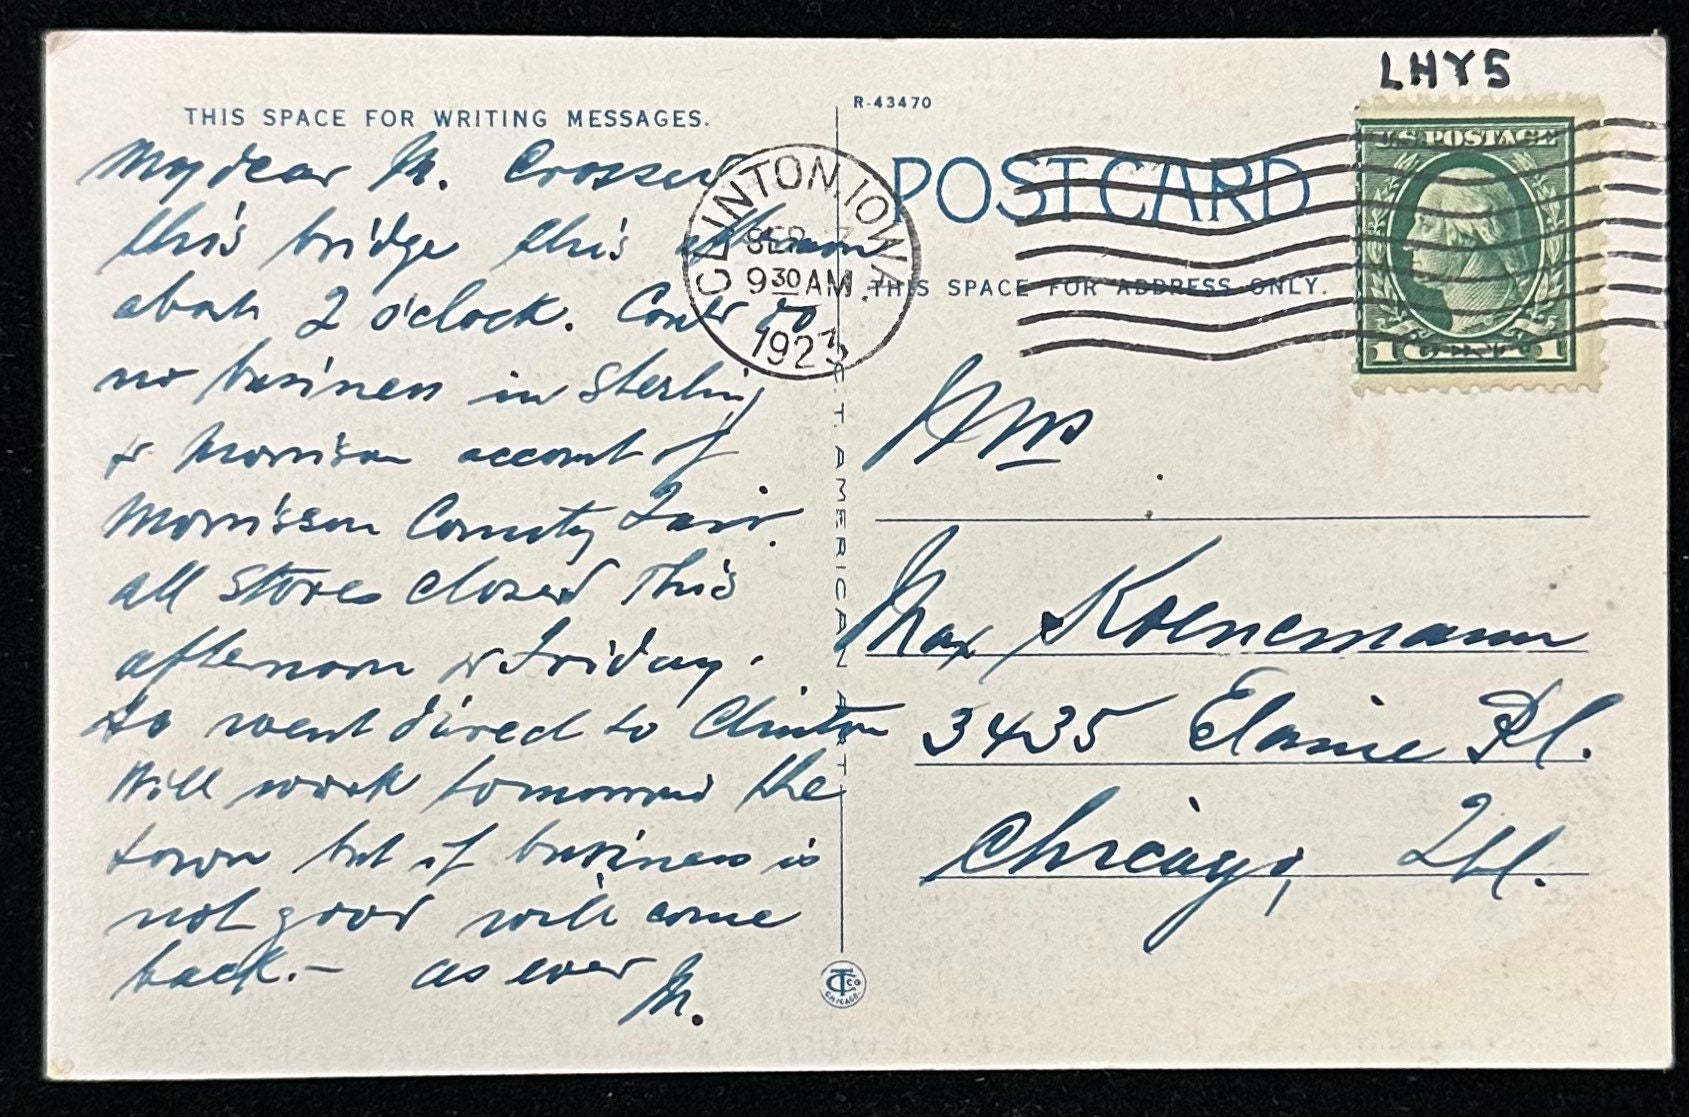 LHY5
THIS SPACE FOR WRITING MESSAGES.
R-43470
POST CARD
THIS SPACE FOR ADDRESS ONLY.
CLINTON, IOWA
SEP
9 30 AM
1923
U.S. POSTAGE
1 CENT 1
My dear M. Crossed
this bridge this afternoon
about 2 o'clock. Could do
no business in Sterling
& Morrison account of
Morrison County Fair.
all stores closed This
afternoon & Friday.
So went direct to Clinton
Will work tomorrow the
town but if business is
not good will come
back.- as ever M.
C.T. AMERICAN ART
CT CO
CHICAGO
Mrs
Max Koenemann
3435 Elaine Pl.
Chicago, Ill.